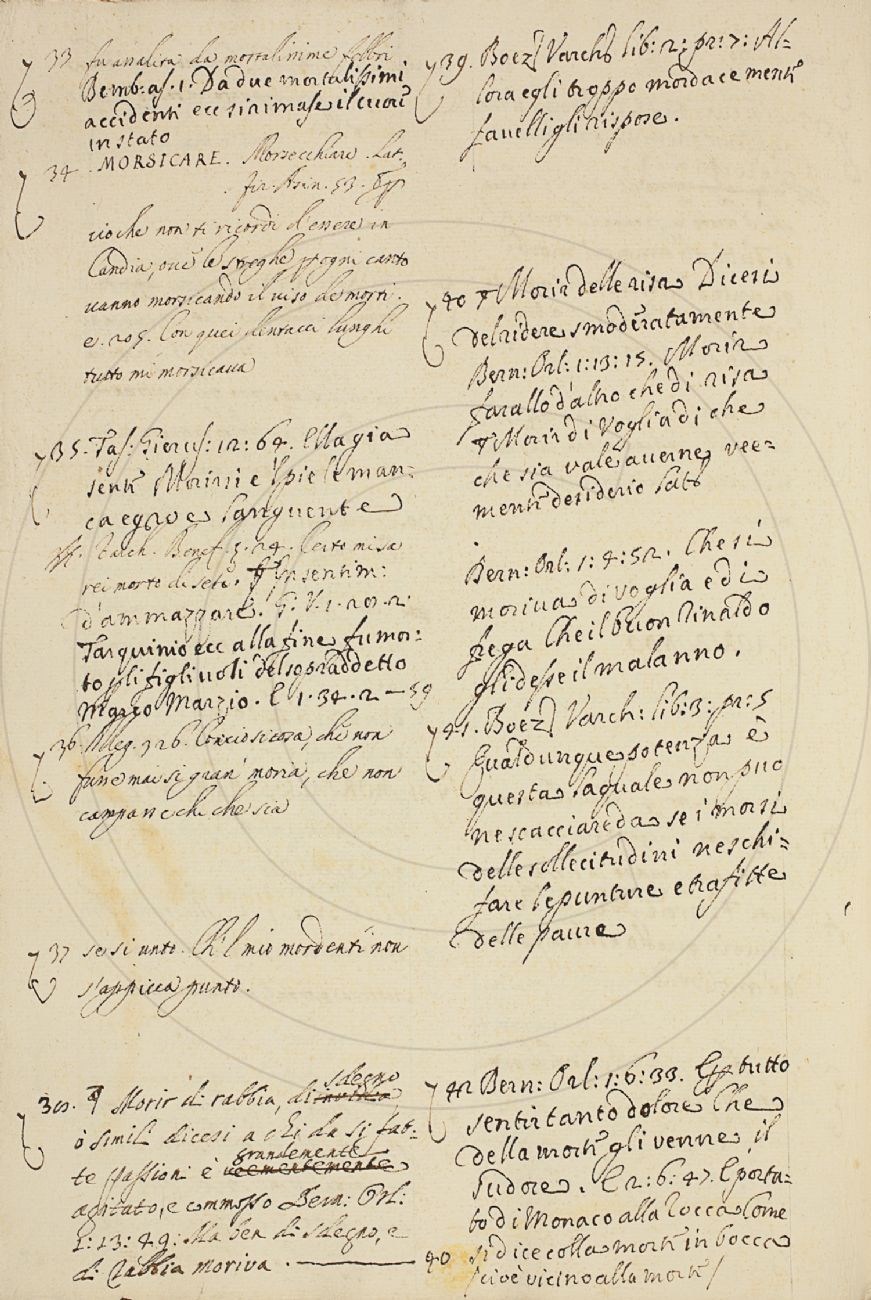 33 fu assalita da mortalissime febbri
Bemb: as. 1. Da due mortalissimi
accidenti ecc si rimase il cuore
in stato
34 MORSICARE. Morsecchiare. Lat.
fir Asin. 53.
cio che non ti ricordi d'essere in
Candia, ove le streghe p ogni canto
vanno morsicando il viso de morti.
e. 205. Con quei dentacci lunghi
tutto mi morsicava
35. Tas: Gierus: 12: 69. Ella già
sente Morirsi e 'l piè le man-
ca egro e languente
Varch. Benef. 5. 24. Certo mi sa
rei morto di sete. In sentim:
d'ammazzare. G: V. 1. 29. 2.
Tarquinio ecc alla fine fu mor-
to p li figliuoli del sopraddetto
Marco Marzio. E 1. 34. 2 — 59
36. Alleg. 326. Conciosicosa, che non
fusse mai si gran moria, che non
campasse chi che sia
37 se si unto. Ch'l mio mordente non
s'appicca punto.
38. Morir di rabbia, di invidia sdegno
o simili dicesi a chi da sì fat-
te passioni è veementemente grandemente
agitato, e commosso Bern: Orl:
1: 13: 49: Ma ben di sdegno, e
di rabbia moriva. — 40
39. Boez: Varch: lib: 2: pr: 7: Al-
lora egli troppo mordacemente
favelli gli rispose.
40 Morir delle risa Dicesi
del ridere smoderatamente
Bern: Orl: 1: 13: 15. Morir
farallo d'altro che di risa
Morir di voglia di che
che sia vale averne vee-
mente desiderio Lat:
Bern: Orl: 1: 4: 52. Che si
moriva di voglia e di
frega Che il buon Rinaldo
gli desse il malanno.
41. Boez: Varch: lib: 3: pr: 5
Qual dunque potenza è
questa la quale non può
ne scacciare da se i morsi
delle sollecitudini ne schi-
fare le punture e trafitte
delle paure
42 Bern: Orl: 1: 6: 33. E p tutto
sentir tanto dolore Che
della morte gli venne il
sudore. E 2: 6: 47. E porta-
to di Monaco alla rocca Come
si dice colla morte in bocca
/cioè vicino alla morte/